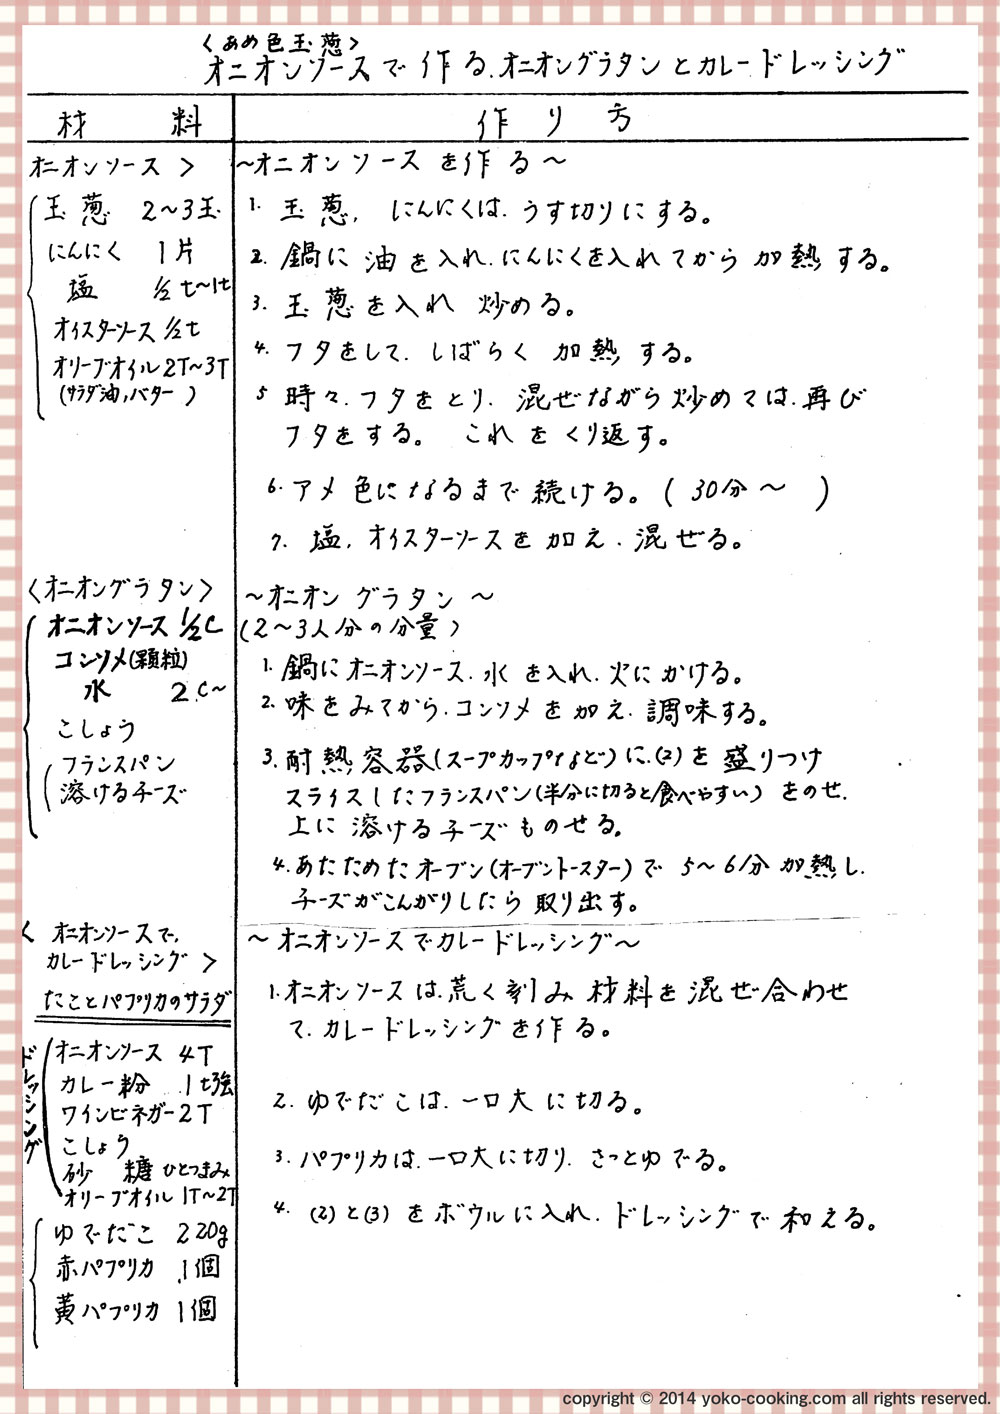 <あめ色玉葱>
オニオンソースで作る、オニオングラタンとカレードレッシング
材 料
作り方
オニオンソース >
玉葱 2〜3玉
にんにく 1片
塩 1/2t〜1t
オイスターソース 1/2t
オリーブオイル 2T〜3T
(サラダ油,バター )
〜オニオンソースを作る〜
1. 玉葱、にんにくは、うす切りにする。
2. 鍋に油を入れ、にんにくを入れてから加熱する。
3. 玉葱を入れ炒める。
4. フタをして、しばらく加熱する。
5 時々、フタをとり、混ぜながら炒めては、再び
フタをする。これをくり返す。
6. アメ色になるまで続ける。( 30分〜 )
7. 塩、オイスターソースを加え、混ぜる。
<オニオングラタン>
オニオンソース 1/2C
コンソメ(顆粒)
水 2C〜
こしょう
フランスパン
溶けるチーズ
〜オニオングラタン〜
(2〜3人分の分量)
1. 鍋にオニオンソース、水を入れ、火にかける。
2. 味をみてから、コンソメを加え、調味する。
3. 耐熱容器(スープカップなど)に、(2)を盛りつけ
スライスしたフランスパン(半分に切ると食べやすい)をのせ、
上に溶けるチーズものせる。
4. あたためたオーブン(オーブントースター)で 5〜6分加熱し、
チーズがこんがりしたら取り出す。
< オニオンソースで、
カレードレッシング >
たことパプリカのサラダ
ドレッシング
オニオンソース 4T
カレー粉 1t強
ワインビネガー 2T
こしょう
砂糖 ひとつまみ
オリーブオイル 1T〜2T
ゆでだこ 220g
赤パプリカ 1個
黄パプリカ 1個
〜オニオンソースでカレードレッシング〜
1. オニオンソースは、荒く刻み材料を混ぜ合わせ
て、カレードレッシングを作る。
2. ゆでだこは、一口大に切る。
3. パプリカは、一口大に切り、さっとゆでる。
4. (2)と(3)をボウルに入れ、ドレッシングで和える。
copyright © 2014 yoko-cooking.com all rights reserved.